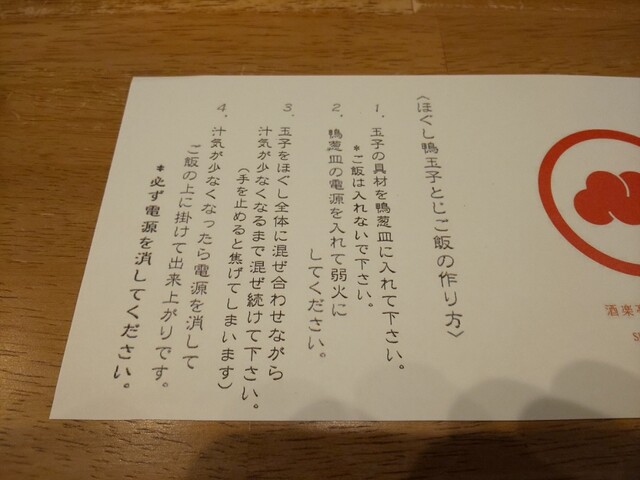 〈ほぐし鴨玉子とじご飯の作り方〉
1、玉子の具材を鴨葱皿に入れて下さい。
*ご飯は入れないで下さい。
2、鴨葱皿の電源を入れて弱火に
してください。
3、玉子をほぐし全体に混ぜ合わせながら
汁気が少なくなるまで混ぜ続けて下さい。
(手を止めると焦げてしまいます)
4、汁気が少なくなったら電源を消して
ご飯の上に掛けて出来上がりです。
*必ず電源を消してください。
酒楽